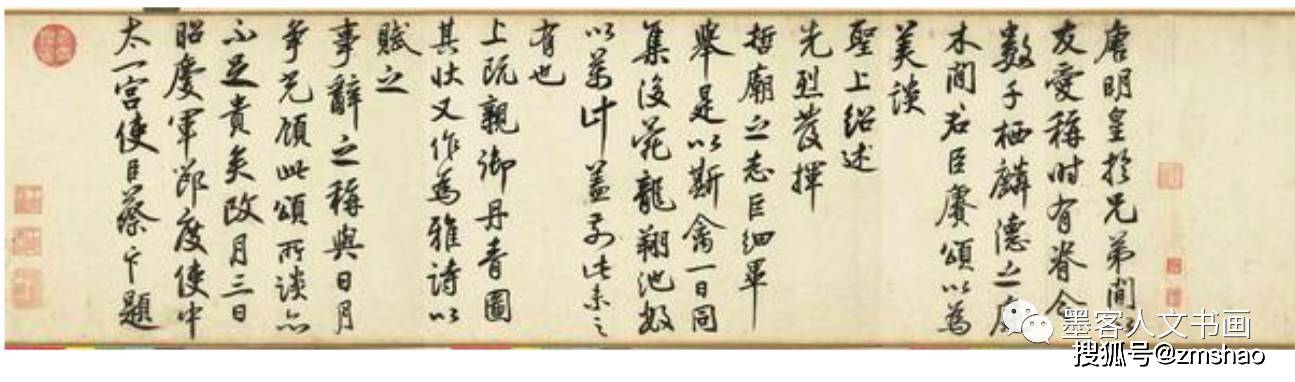 唐明皇於兄弟間以
友愛稱時有脊令
數千栖麟德之庭
木間君臣賡頌以為
美談
聖上紹述
先烈發揮
哲廟之志巨細畢
舉是以斯禽一日同
集後苑龍翔池數
以萬計蓋前此未之
有也
上既親御丹青圖
其狀又作為雅詩以
賦之
事辭之稱與日月
爭光顧此頌所談亦
不足貴矣政月三日
昭慶軍節度使中
太一宮使臣蔡卞題
墨客人文书画
搜狐号@zmshao